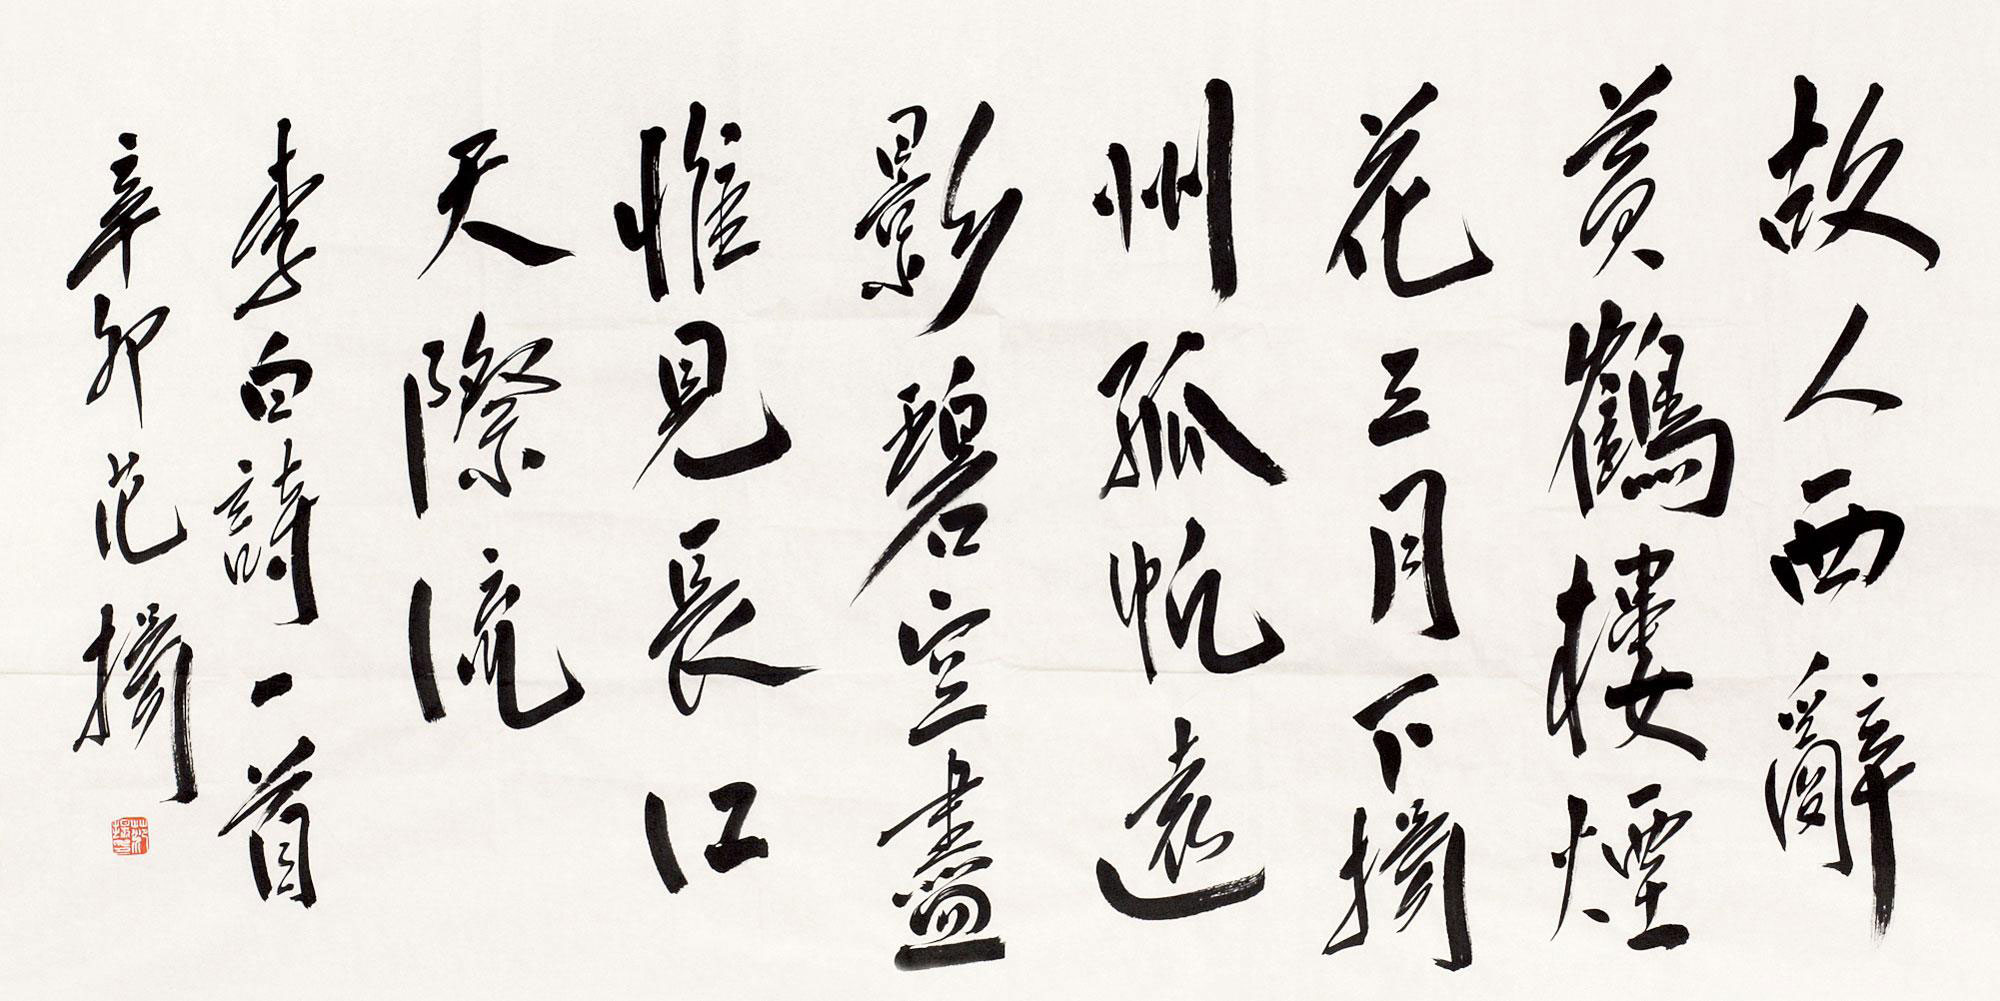 故人西辭
黄鶴樓煙
花三月下揚
州孤帆遠
影碧空盡
惟見長江
天際流
李白詩一首
辛卯范揚
范揚